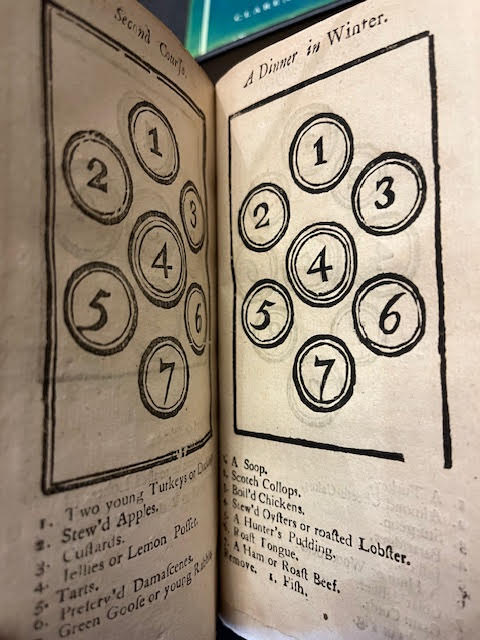 Second Courſe.
1
2
3
4
5
6
7
1. Two young Turkeys or
2. Stew'd Apples.
3. Cuſtards.
4. Jellies or Lemon Poſſet.
5. Tarts.
6. Preſerv'd Damaſcenes.
Green Gooſe or young
A Dinner in Winter.
1
2
3
4
5
6
7
A Soop.
Scotch Collops.
Boil'd Chickens.
Stew'd Oyſters or roaſted Lobſter.
A Hunter's Pudding.
Roaſt Tongue.
A Ham or Roaſt Beef.
1. Fiſh.